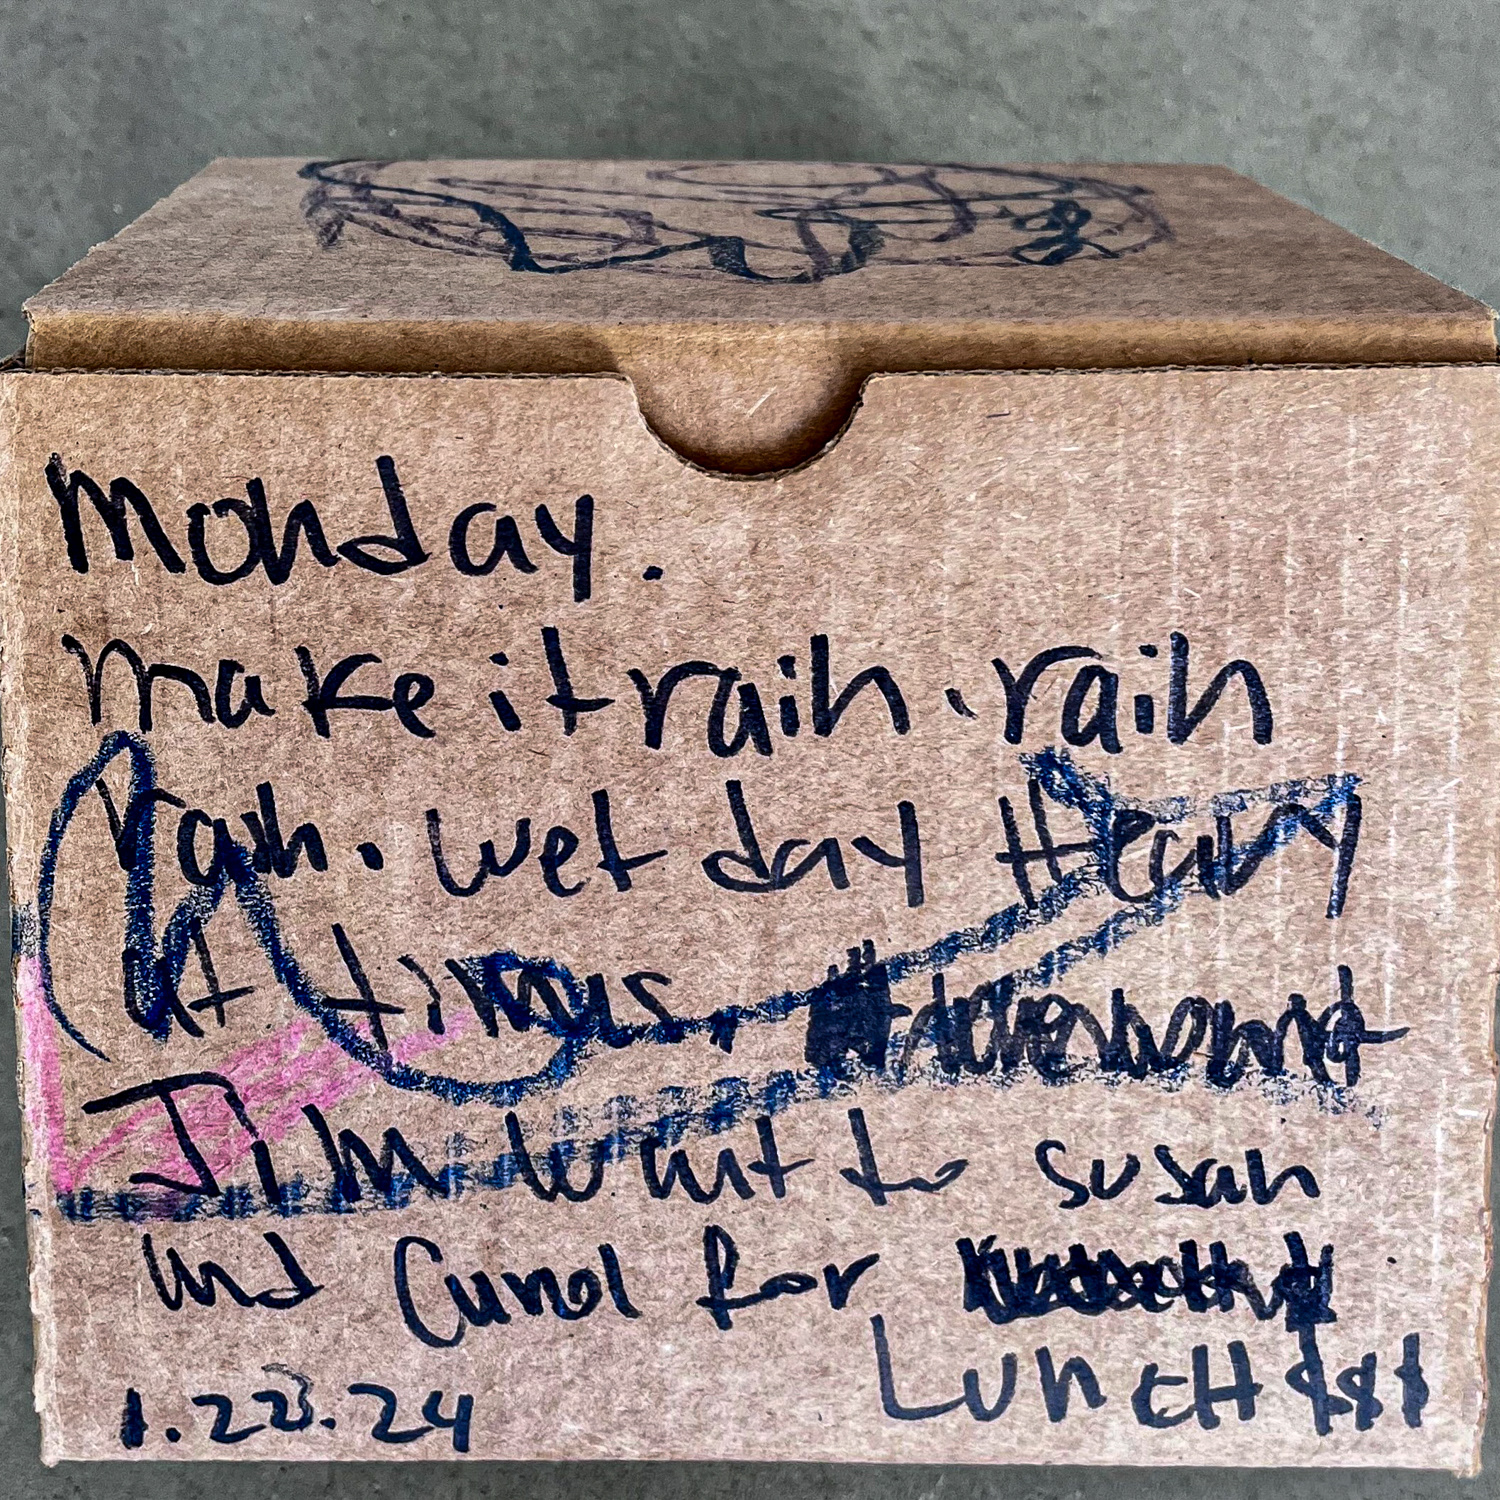 Monday.
make it rain. rain
rain. wet day Heavy
at times.
Jim want to susan
and Carol for
LunCH $$$
1.22.24